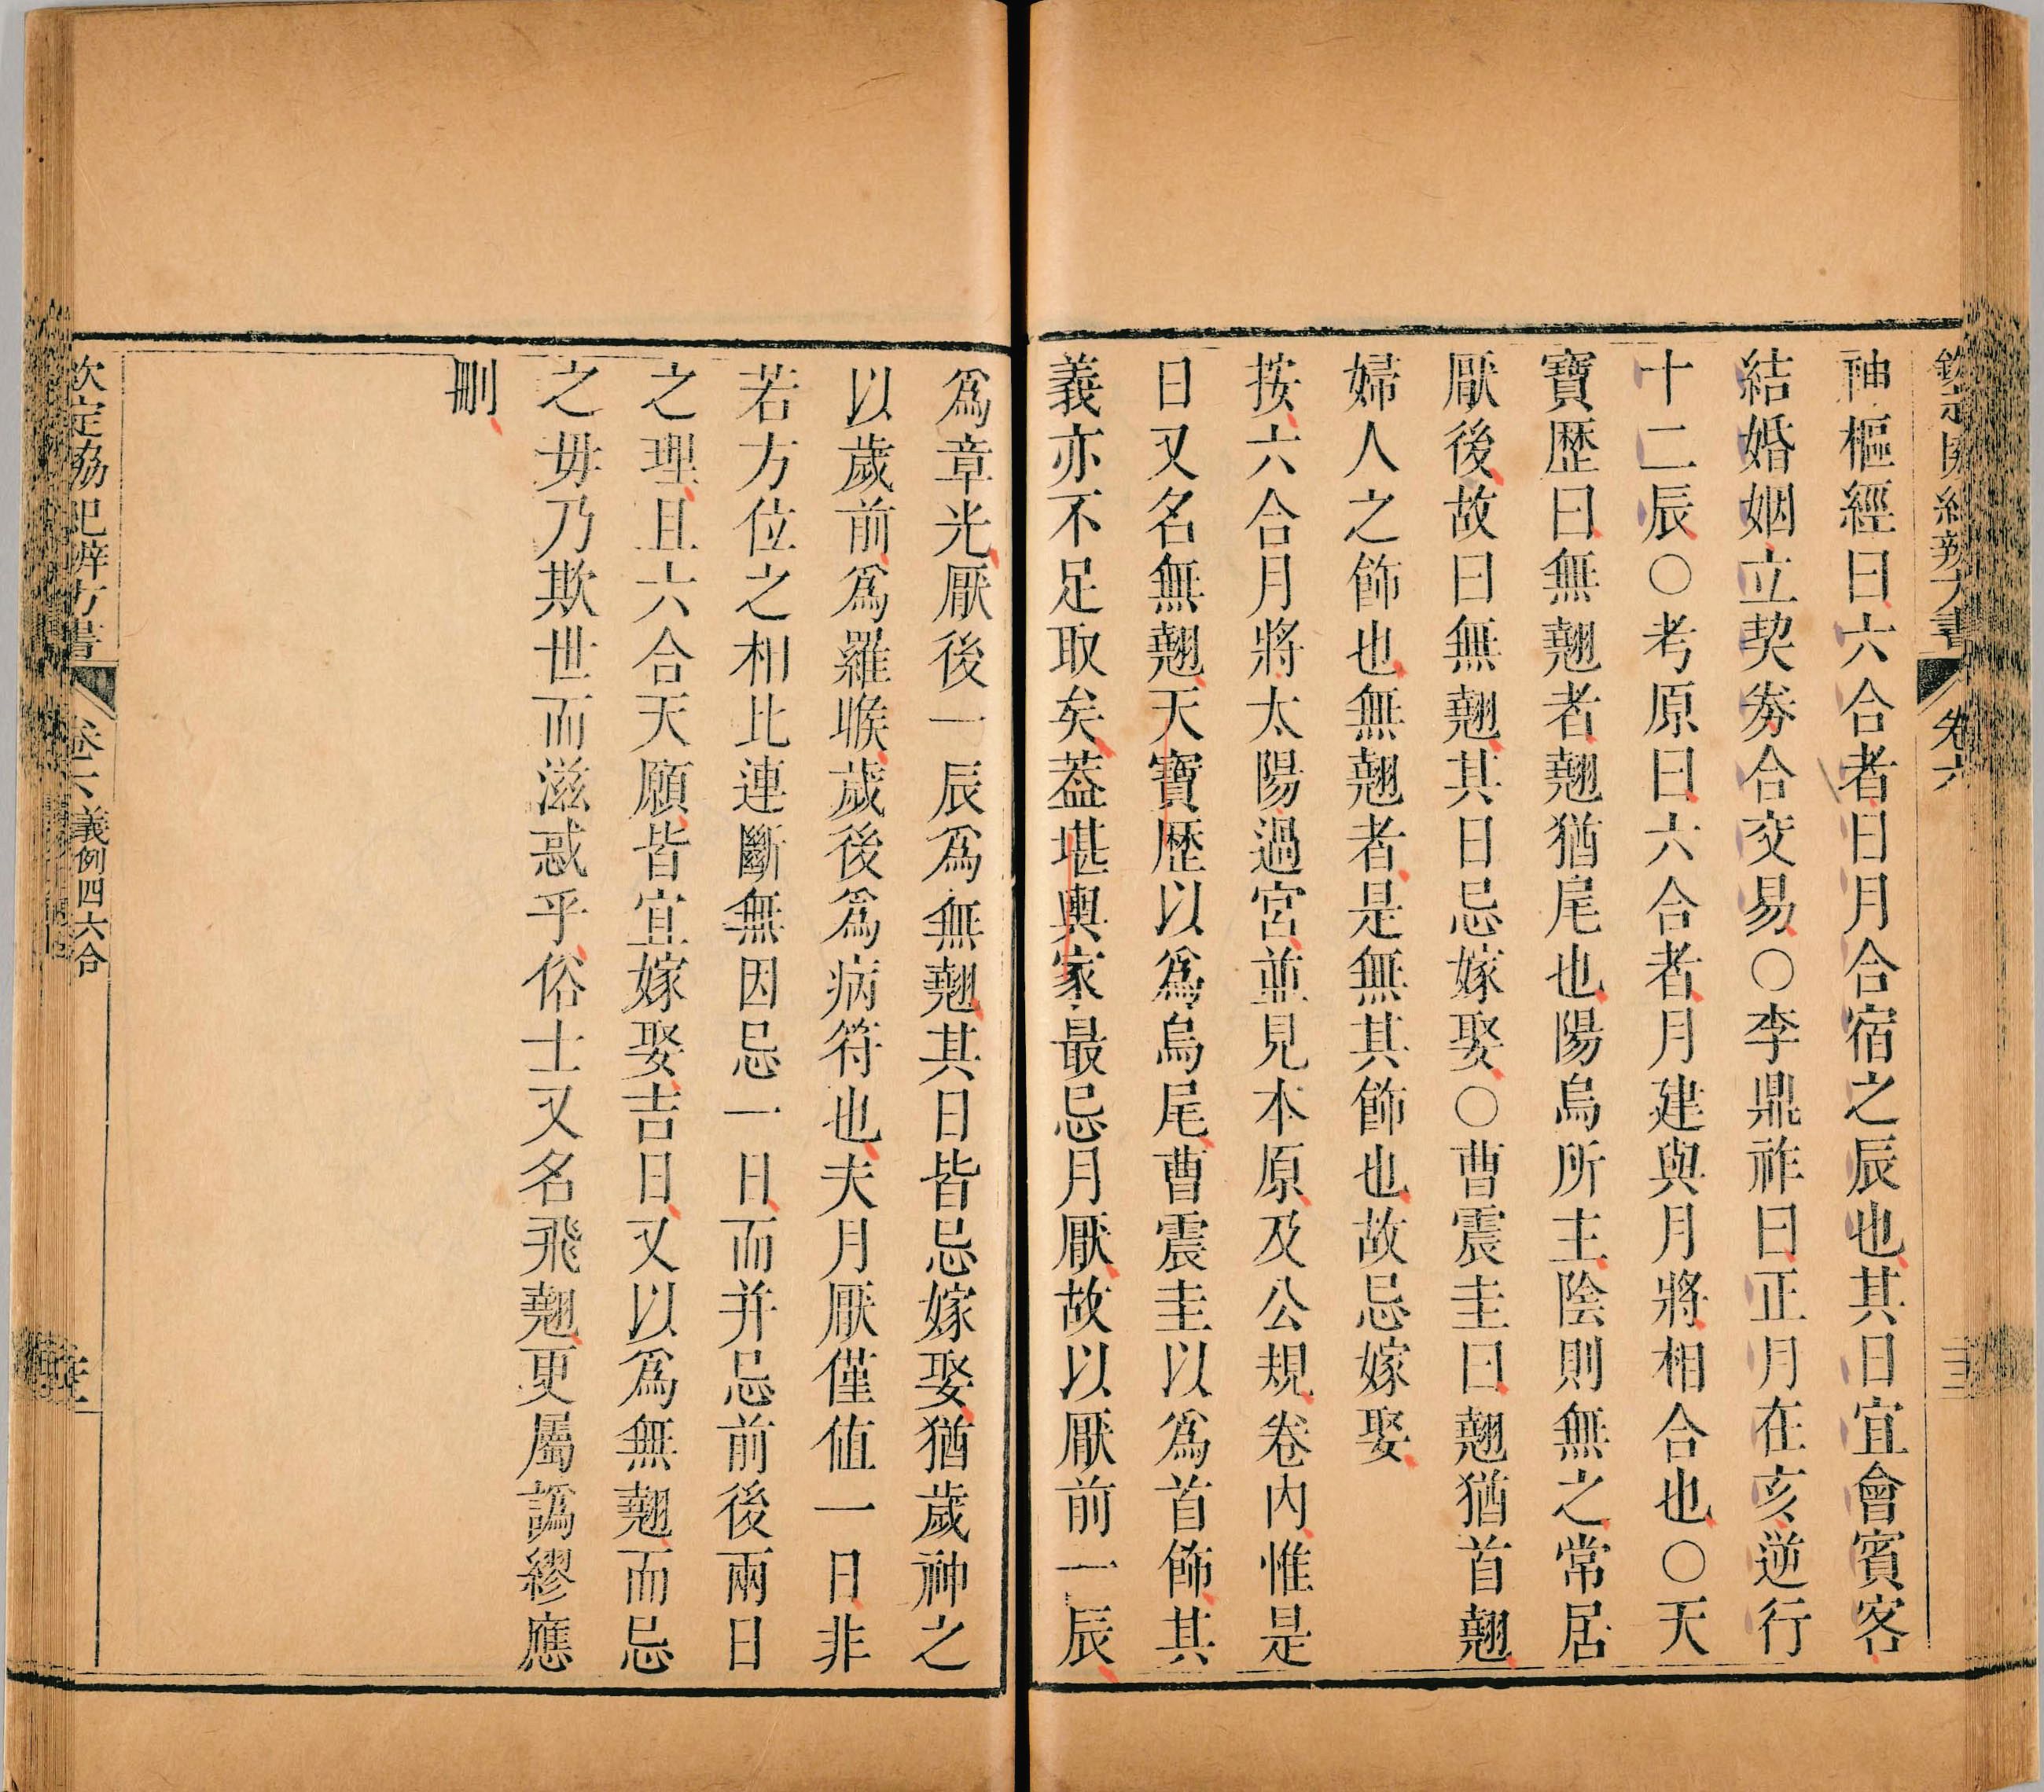 神樞經曰六合者日月合宿之辰也其日宜會賓客
結婚姻立契劵合交易○李鼎祚曰正月在亥逆行
十二辰○考原曰六合者月建與月將相合也○天
寶歷曰無翹者翹猶尾也陽烏所主陰則無之常居
厭後故曰無翹其日忌嫁娶○曹震圭曰翹猶首翹
婦人之飾也無翹者是無其飾也故忌嫁娶
按六合月將太陽過宮並見本原及公規卷内惟是
日又名無翹天寶歷以爲烏尾曹震圭以爲首飾其
義亦不足取矣葢堪輿家最忌月厭故以厭前一辰
爲章光厭後一辰爲無翹其日皆忌嫁娶猶歲神之
以歲前爲羅㬋歲後爲病符也夫月厭僅值一日非
若方位之相比連斷無因忌一日而并忌前後兩日
之理且六合天願皆宜嫁娶吉日又以爲無翹而忌
之毋乃欺世而滋惑乎俗士又名飛翹更屬譌繆應
刪
欽定協紀辨方書 卷六 義例四六合